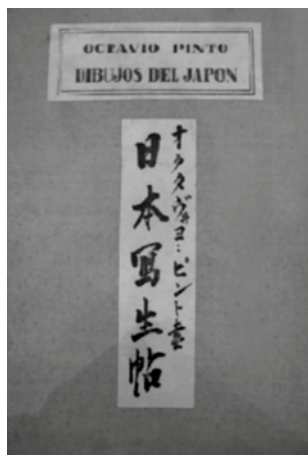 OCTAVIO PINTO
DIBUJOS DEL JAPON
オクタヴィヨ・ピント画
日本写生帖